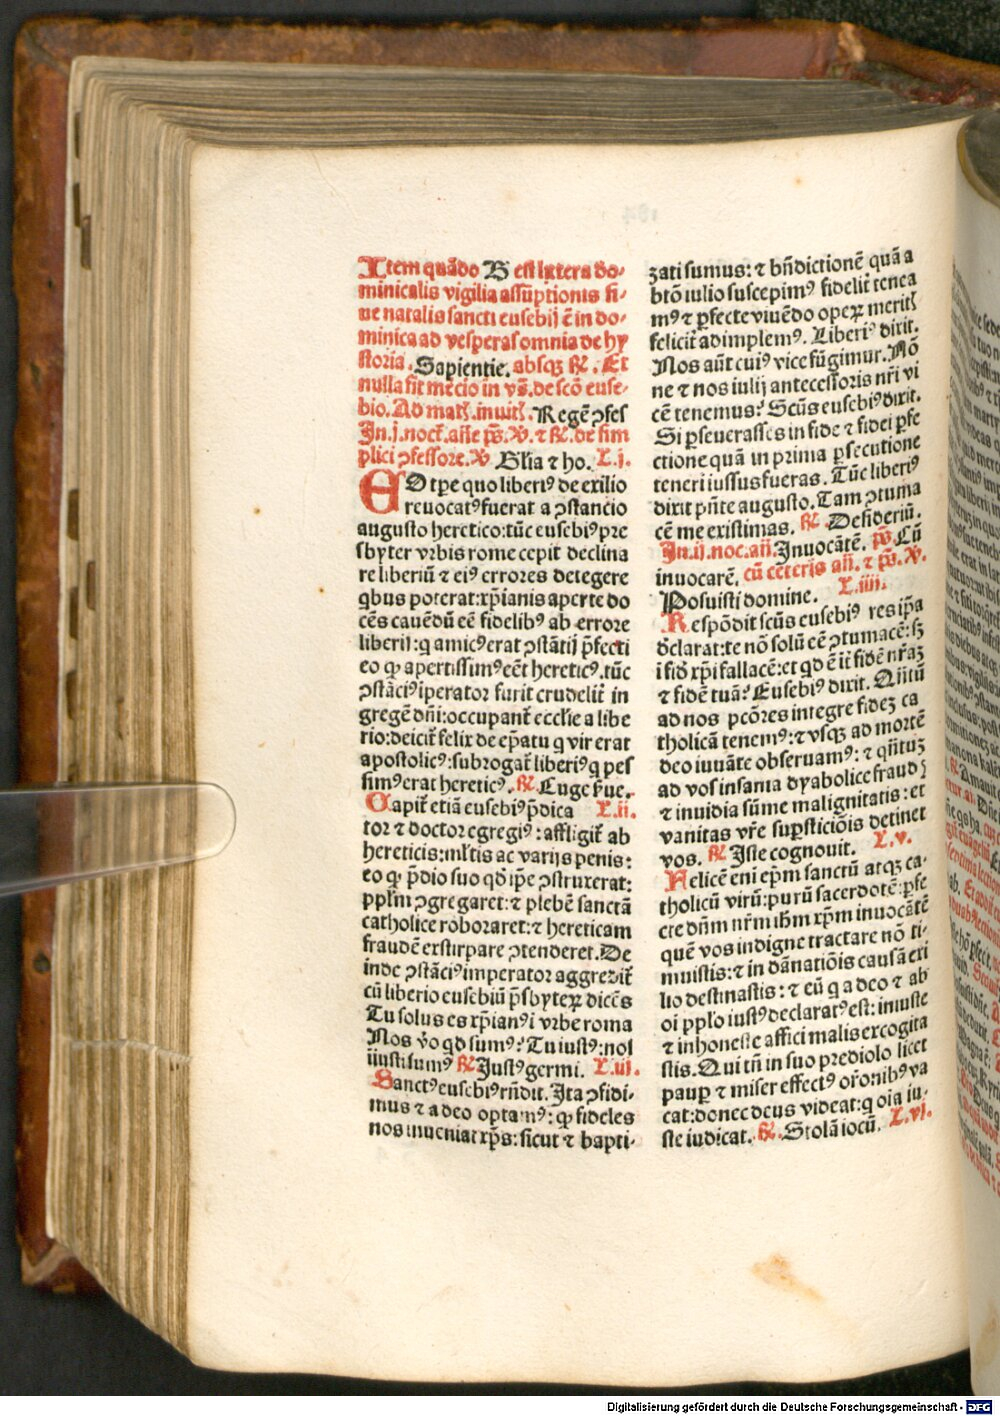 Item quādo B est lrtera do-
minicalis vigilia assūptionis si-
ue natalis sancti eusebij ē in do-
minica ad vesperas omnia de hy
storia. Sapientie. absqꝫ ℟. Et
nulla fit mēcio in vꝫ. de scō euse-
bio. Ad matꝭ. inuitꝭ. Regē ꝯfes
In .j. noct. añe p̄s. ꝟ. ⁊ ℟. de sim
plici ꝯfessore. ꝟ Gl̄ia ⁊ ho. L.j.
EO tꝑe quo liberiꝰ de exilio
reuocatꝰ fuerat a ꝯstancio
augusto heretico: tūc eusebiꝰ pre
sbyter vrbis rome cepit declina
re liberiū ⁊ eiꝰ errores detegere
qbus poterat: xp̄ianis aperte do
cēs cauēdū eē fidelibꝰ ab errore
liberij: q amicꝰ erat ꝯstātij p̄fecti
eo qꝫ apertissimꝰ eēt hereticꝰ. tūc
ꝯstāciꝰ iperator furit crudelit̄ in
gregē dñi: occupant̄ eccl̄ie a libe
rio: deicit̄ felix de ep̄atu q vir erat
apostolicꝰ: subrogat̄ liberiꝰ q pes
simꝰ erat hereticꝰ. ℟. Euge s̄ue.
Capit̄ etiā eusebiꝰ p̄dica L.ij.
tor ⁊ doctor egregiꝰ: affligit̄ ab
hereticis: ml̄tis ac varijs penis:
eo qꝫ p̄dio suo qd̄ ip̄e ꝯstruxerat:
ppl̄m ꝯgregaret: ⁊ plebē sanctā
catholice roboraret: ⁊ hereticam
fraudē exstirpare ꝯtenderet. De
inde ꝯstāciꝰ imperator aggredit̄
cū liberio eusebiū p̄sbyteꝝ dicēs
Tu solus es xp̄ianꝰ i vrbe roma
Nos v̄o qd̄ sumꝰ? Tu iustꝰ: nos
iiusti sumꝰ ℟ Justꝰ germi. L.iij.
Sanctꝰ eusebiꝰ rñdit. Ita ꝯfidi-
mus ⁊ a deo optamꝰ: qꝫ fideles
nos inueniat xp̄s: sicut ⁊ bapti-
zati sumus: ⁊ bñdictionē quā a
btō iulio suscepimꝰ fidelit̄ tenea
mꝰ ⁊ ꝑfecte viuēdo opeꝝ meritꝭ
felicit̄ adimplemꝰ. Liberiꝰ dixit.
Nos aūt cuiꝰ vice fūgimur. Nō
ne ⁊ nos iulij antecessoris nr̄i vi
cē tenemus? Scūs eusebiꝰ dixit.
Si ꝑseuerasses in fide ⁊ fidei ꝑfe
ctione quā in prima ꝑsecutione
teneri iussus fueras. Tūc liberiꝰ
dixit pñte augusto. Tam ꝯtuma
cē me existimas. ℟. Desideriū.
In .ij. noc. añ. Inuocātē. p̄s. Cū
inuocarē. cū ceteris añ. ⁊ p̄s. ꝟ.
Posuisti domine. L.iiij.
Respōdit scūs eusebiꝰ res ip̄a
declarat: te nō solū eē ꝯtumacē: sꝫ
i fid̄ xp̄i fallacē: et qd̄ ē it̄ fidē nr̄aꝫ
⁊ fidē tuā? Eusebiꝰ dixit. Qñtū
ad nos pcōres integre fidez ca
tholicā tenemꝰ: ⁊ vsqꝫ ad mortē
deo iuuāte obseruamꝰ: ⁊ qñtuꝫ
ad vos insania dyabolice fraudꝭ
⁊ inuidia sūme malignitatis: et
vanitas vr̄e suꝑsticiōis detinet
vos. ℟ Iste cognouit. L.v.
Felicē eni ep̄m sanctū atqꝫ ca-
tholicū virū: purū sacerdotē: ꝑfe
cte dn̄m nr̄m ih̄m xp̄m inuocātē
quē vos indigne tractare nō ti-
muistis: ⁊ in dānatiōis causā exi
lio destinastis: ⁊ eū q a deo ⁊ ab
oi pplo iustꝰ declaratꝰ est: iniuste
⁊ inhoneste affici malis excogita
stis. Qui tn̄ in suo prediolo licet
pauꝑ ⁊ miser effectꝰ or̄onibꝰ va
cat: donec deus videat: q oīa iu-
ste iudicat. ℟. Stolā iocū. L.vj.
Digitalisierung gefördert durch die Deutsche Forschungsgemeinschaft - DFG